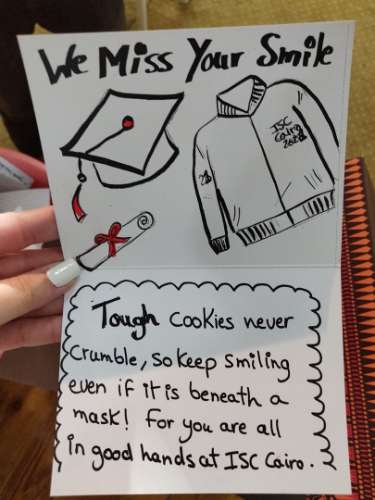 We Miss Your Smile
ISC
Cairo
Tough Cookies never
Crumble, so keep smiling
even if it is beneath a
mask! For you are all
in good hands at ISC Cairo.